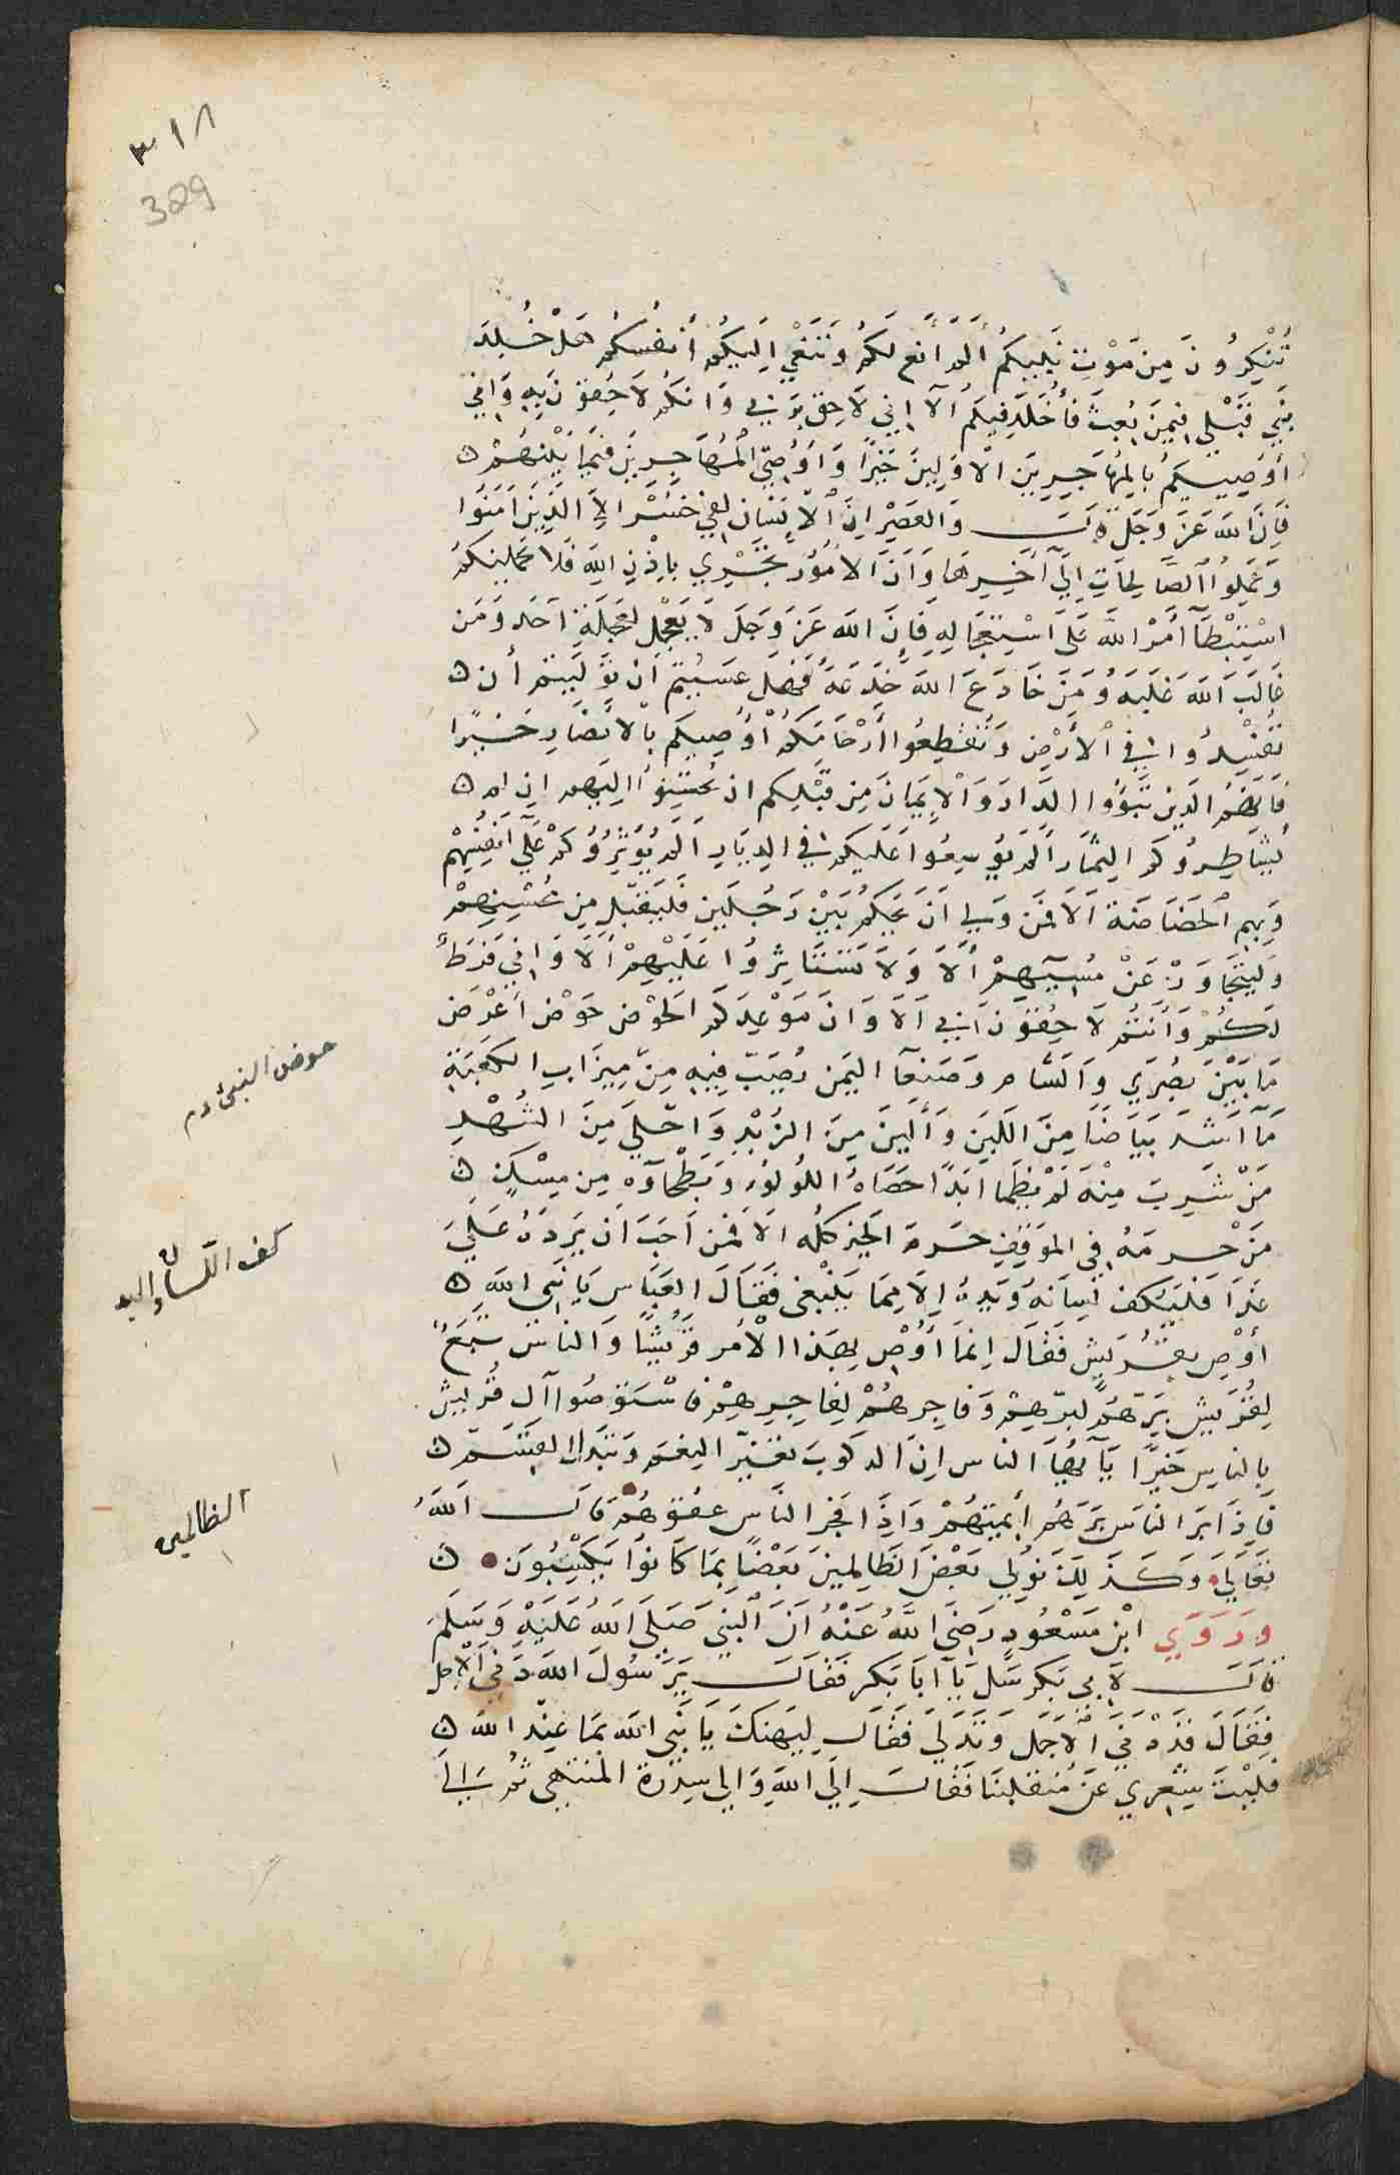 ٣١٨
329
تُنْكِرُونَ مِن مَوْتِ نَبِيِّكُمْ أَلَمْ أُنْعَ لَكُمْ وَتُنْعَى إِلَيْكُمْ أَنفُسُكُمْ هَلْ خُلِّدَ
نَبِيٌّ قَبْلِي فِيمَنْ بُعِثَ فَأُخَلَّدَ فِيكُمْ أَلَا إِنِّي لَاحِقٌ بِرَبِّي وَإِنَّكُمْ لَاحِقُونَ بِهِ وَإِنِّي
أُوصِيكُمْ بِالْمُهَاجِرِينَ الْأَوَّلِينَ خَيْرًا وَأُوصِي الْمُهَاجِرِينَ فِيمَا بَيْنَهُمْ ۞
فَإِنَّ اللَّهَ عَزَّ وَجَلَّ قَالَ وَالْعَصْرِ إِنَّ الْإِنْسَانَ لَفِي خُسْرٍ إِلَّا الَّذِينَ آمَنُوا
وَعَمِلُوا الصَّالِحَاتِ إِلَى آخِرِهَا وَأَنَّ الْأُمُورَ تَجْرِي بِإِذْنِ اللَّهِ فَلَا يَحْمِلَنَّكُمْ
اسْتِبْطَاءُ أَمْرِ اللَّهِ عَلَى اسْتِعْجَالِهِ فَإِنَّ اللَّهَ عَزَّ وَجَلَّ لَا يَعْجَلُ لِعَجَلَةِ أَحَدٍ وَمَنْ
غَالَبَ اللَّهَ غَلَبَهُ وَمَنْ خَادَعَ اللَّهَ خَدَعَهُ فَهَلْ عَسَيْتُمْ إِنْ تَوَلَّيْتُمْ أَنْ ۞
تُفْسِدُوا فِي الْأَرْضِ وَتُقَطِّعُوا أَرْحَامَكُمْ أُوصِيكُمْ بِالْأَنْصَارِ خَيْرًا
فَإِنَّهُمُ الَّذِينَ تَبَوَّؤُا الدَّارَ وَالْإِيمَانَ مِنْ قَبْلِكُمْ أَنْ تُحْسِنُوا إِلَيْهِمْ أَلَمْ ۞
يُشَاطِرُوكُمُ الثِّمَارَ أَلَمْ يُوَسِّعُوا عَلَيْكُمْ فِي الدِّيَارِ أَلَمْ يُؤْثِرُوكُمْ عَلَى أَنْفُسِهِمْ
وَبِهِمُ الْخَصَاصَةُ أَلَا فَمَنْ وَلِيَ أَنْ يَحْكُمَ بَيْنَ رَجُلَيْنِ فَلْيَقْبَلْ مِنْ مُحْسِنِهِمْ
وَلْيَتَجَاوَزْ عَنْ مُسِيئِهِمْ أَلَا وَلَا تَسْتَأْثِرُوا عَلَيْهِمْ أَلَا وَإِنِّي فَرَطٌ
لَكُمْ وَأَنْتُمْ لَاحِقُونَ بِي أَلَا وَإِنَّ مَوْعِدَكُمُ الْحَوْضُ حَوْضٌ أَعْرَضُ
مَا بَيْنَ بُصْرَى وَالشَّامِ وَصَنْعَا الْيَمَنِ يُصَبُّ فِيهِ مِنْ مِيزَابِ الْكَعْبَةِ
مَاءٌ أَشَدُّ بَيَاضًا مِنَ اللَّبَنِ وَأَلْيَنُ مِنَ الزُّبْدِ وَأَحْلَى مِنَ الشُّهْدِ
مَنْ شَرِبَ مِنْهُ لَمْ يَظْمَأْ أَبَدًا حَصَاهُ اللُّؤْلُؤُ وَبَطْحَاؤُهُ مِنْ مِسْكٍ ۞
مَنْ حُرِمَهُ فِي الْمَوْقِفِ حُرِمَ الْخَيْرَ كُلَّهُ أَلَا فَمَنْ أَحَبَّ أَنْ يَرِدَهُ عَلَيَّ
غَدًا فَلْيَكُفَّ لِسَانَهُ وَيَدَهُ إِلَّا مِمَّا يَنْبَغِي فَقَالَ الْعَبَّاسُ يَا نَبِيَّ اللَّهِ ۞
أَوْصِ بِقُرَيْشٍ فَقَالَ إِنَّمَا أُوصِي بِهَذَا الْأَمْرِ قُرَيْشًا وَالنَّاسُ تَبَعٌ
لِقُرَيْشٍ بَرُّهُمْ لِبَرِّهِمْ وَفَاجِرُهُمْ لِفَاجِرِهِمْ فَاسْتَوْصُوا آلَ قُرَيْشٍ
بِالنَّاسِ خَيْرًا يَا أَيُّهَا النَّاسُ إِنَّ الذُّنُوبَ تُغَيِّرُ النِّعَمَ وَتُبَدِّلُ الْقِسَمَ ۞
فَإِذَا بَرَّ النَّاسُ بَرَّهُمْ أَئِمَّتُهُمْ وَإِذَا فَجَرَ النَّاسُ عَقُّوهُمْ قَالَ اللَّهُ
تَعَالَى وَكَذَلِكَ نُوَلِّي بَعْضَ الظَّالِمِينَ بَعْضًا بِمَا كَانُوا يَكْسِبُونَ ۞
وَرَوَى ابْنُ مَسْعُودٍ رَضِيَ اللَّهُ عَنْهُ أَنَّ النَّبِيَّ صَلَّى اللَّهُ عَلَيْهِ وَسَلَّمَ
قَالَ لِأَبِي بَكْرٍ سَلْ يَا أَبَا بَكْرٍ فَقَالَ يَرَسُولَ اللَّهِ دَنَى الْأَجَلُ
فَقَالَ قَدْ دَنَى الْأَجَلُ وَتَدَلَّى فَقَالَ لِيَهْنِكَ يَا نَبِيَّ اللَّهِ مَا عِنْدَ اللَّهِ ۞
فَلَيْتَ شِعْرِي عَنْ مُنْقَلَبِنَا فَقَالَ إِلَى اللَّهِ وَإِلَى سِدْرَةِ الْمُنْتَهَى ثُمَّ إِلَى
حوض النبي
كف اللسان واليد
الظالمين